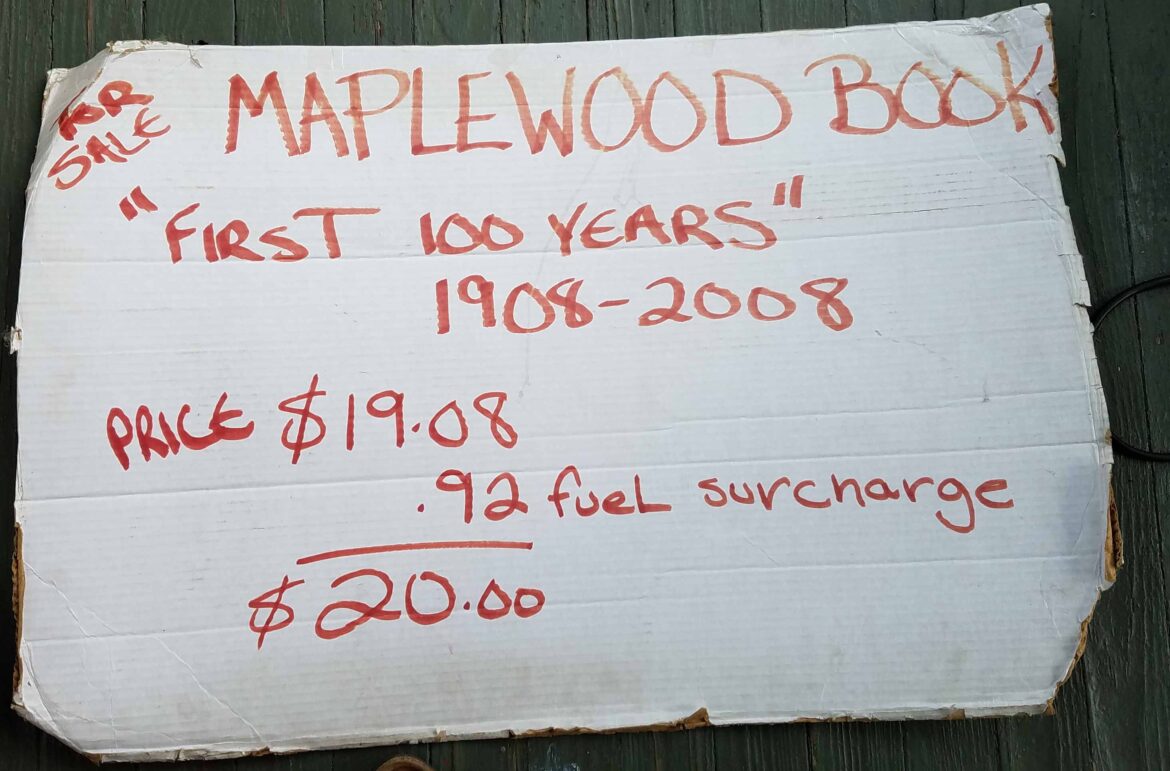 FOR
SALE
MAPLEWOOD BOOK
"FIRST 100 YEARS"
1908-2008
PRICE $19.08
.92 fuel surcharge
$20.00